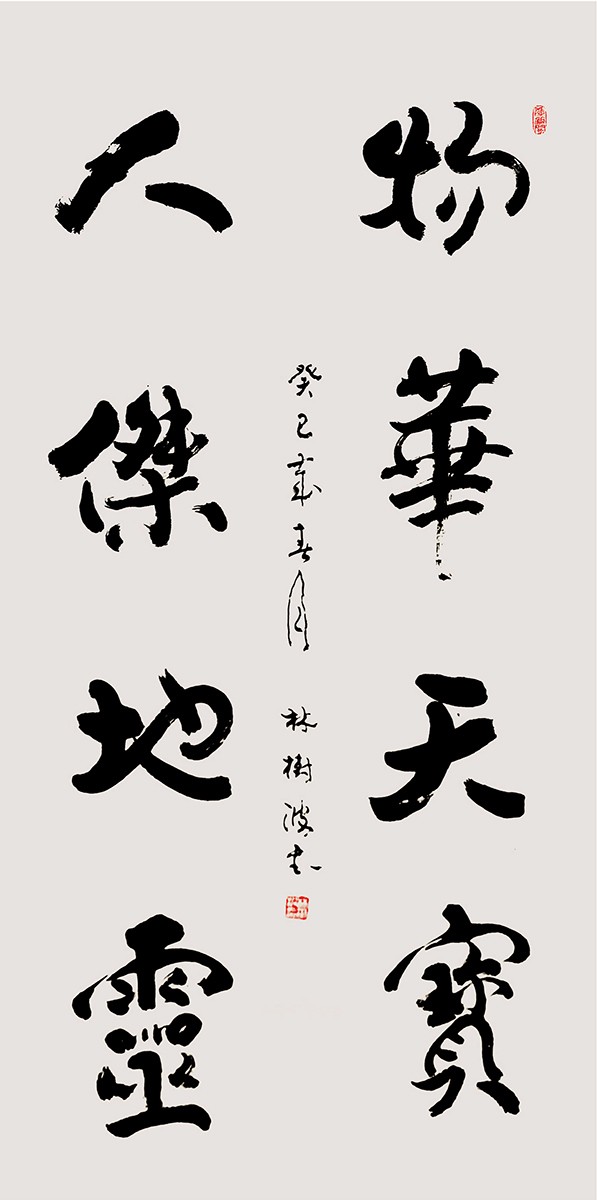 物華天寶
人傑地靈
癸巳歲春月 林樹波書